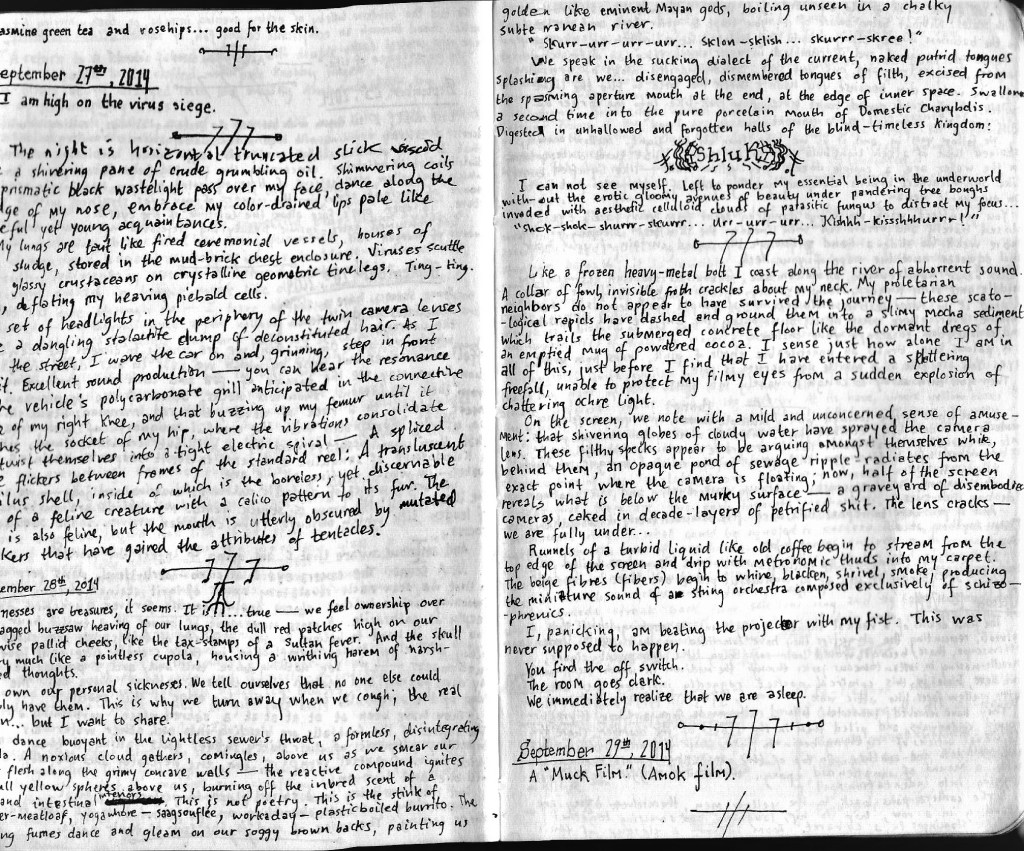 asmine green tea and rosehips... good for the skin.
eptember 27th, 2014
I am high on the virus siege.
The night is horizontal truncated slick
a shivering pane of crude grumbling oil. Shimmering coils
prismatic black wastelight pass over my face, dance along the
ge of my nose, embrace my color-drained lips pale like
eful yet young acquaintances.
My lungs are taut like fired ceremonial vessels, houses of
sludge, stored in the mud-brick chest enclosure. Viruses scuttle
glassy crustaceans on crystalline geometric tinelegs. Ting-ting.
, deflating my heaving piebald cells.
set of headlights in the periphery of the twin camera lenses
a dangling stalactite clump of deconstituted hair. As I
the street, I wave the car on and, grinning, step in front
it. Excellent sound production — you can hear the resonance
he vehicle's polycarbonate grill anticipated in the connective
of my right knee, and that buzzing up my femur until it
hes the socket of my hip, where the vibrations consolidate
twist themselves into a tight electric spiral — A spliced
flickers between frames of the standard reel: A translucent
ilus shell, inside of which is the boneless, yet discernable
of a feline creature with a calico pattern to its fur. The
is also feline, but the mouth is utterly obscured by mutated
kers that have gained the attributes of tentacles.
ember 28th, 2014
nesses are treasures, it seems. It is ...true — we feel ownership over
agged buzzsaw heaving of our lungs, the dull red patches high on our
wise pallid cheeks, like the tax-stamps of a Sultan fever. And the skull
ry much like a pointless cupola, housing a writhing harem of harsh-
ed thoughts.
own our personal sicknesses. We tell ourselves that no one else could
bly have them. This is why we turn away when we cough; the real
n... but I want to share.
dance buoyant in the lightless sewer's throat, a formless, disintegrating
a. A noxious cloud gathers, comingles, above us as we smear our
flesh along the grimy concave walls — the reactive compound ignites
all yellow spheres above us, burning off the inbred scent of a
and intestinal interiors. This is not poetry. This is the stink of
er-meatloaf, yogawhore — saagsouflée, workaday — plasticboiled burrito. The
ng fumes dance and gleam on our soggy brown backs, painting us
golden like eminent Mayan gods, boiling unseen in a chalky
subterranean river.
"Skurr-urr-urr-uvr... Sklon-sklish... skurrr-skree!"
We speak in the sucking dialect of the current, naked putrid tongues
splashing are we... disengaged, dismembered tongues of filth, excised from
the spasming aperture mouth at the end, at the edge of inner space. Swallowe
a second time into the pure porcelain mouth of Domestic Charybdis.
Digested in unhallowed and forgotten halls of the blind-timeless kingdom:
Shluk
I can not see myself. Left to ponder my essential being in the underworld
with-out the erotic gloomy avenues of beauty under pandering tree boughs
invaded with aesthetic celluloid clouds of parasitic fungus to distract my focus...
"Shok-shok-shurrr-skurrr... Urr-urr-urr... Kishhh-kissshhhurrr!"
Like a frozen heavy-metal bolt I coast along the river of abhorrent sound.
A collar of fowl, invisible froth crackles about my neck. My proletarian
neighbors do not appear to have survived the journey — these scato-
-logical rapids have dashed and ground them into a slimy mocha sediment
which trails the submerged concrete floor like the dormant dregs of
an emptied mug of powdered cocoa. I sense just how alone I am in
all of this, just before I find that I have entered a spluttering
freefall, unable to protect my filmy eyes from a sudden explosion of
chattering ochre light.
On the screen, we note with a mild and unconcerned sense of amuse-
ment: that shivering globes of cloudy water have sprayed the camera
lens. These filthy specks appear to be arguing amongst themselves while,
behind them, an opaque pond of sewage ripple-radiates from the
exact point where the camera is floating; now, half of the screen
reveals what is below the murky surface — a graveyard of disembodie
cameras, caked in decade-layers of petrified shit. The lens cracks —
we are fully under...
Runnels of a turbid liquid like old coffee begin to stream from the
top edge of the screen and drip with metronomic thuds into my carpet.
The beige fibres (fibers) begin to whine, blacken, shrivel, smoke, producing
the miniature sound of a string orchestra composed exclusively if schizo-
-phrenics.
I, panicking, am beating the projector with my fist. This was
never supposed to happen.
You find the off switch.
The room goes dark.
We immediately realize that we are asleep.
September 29th, 2014
A "Muck Film." (Amok film).